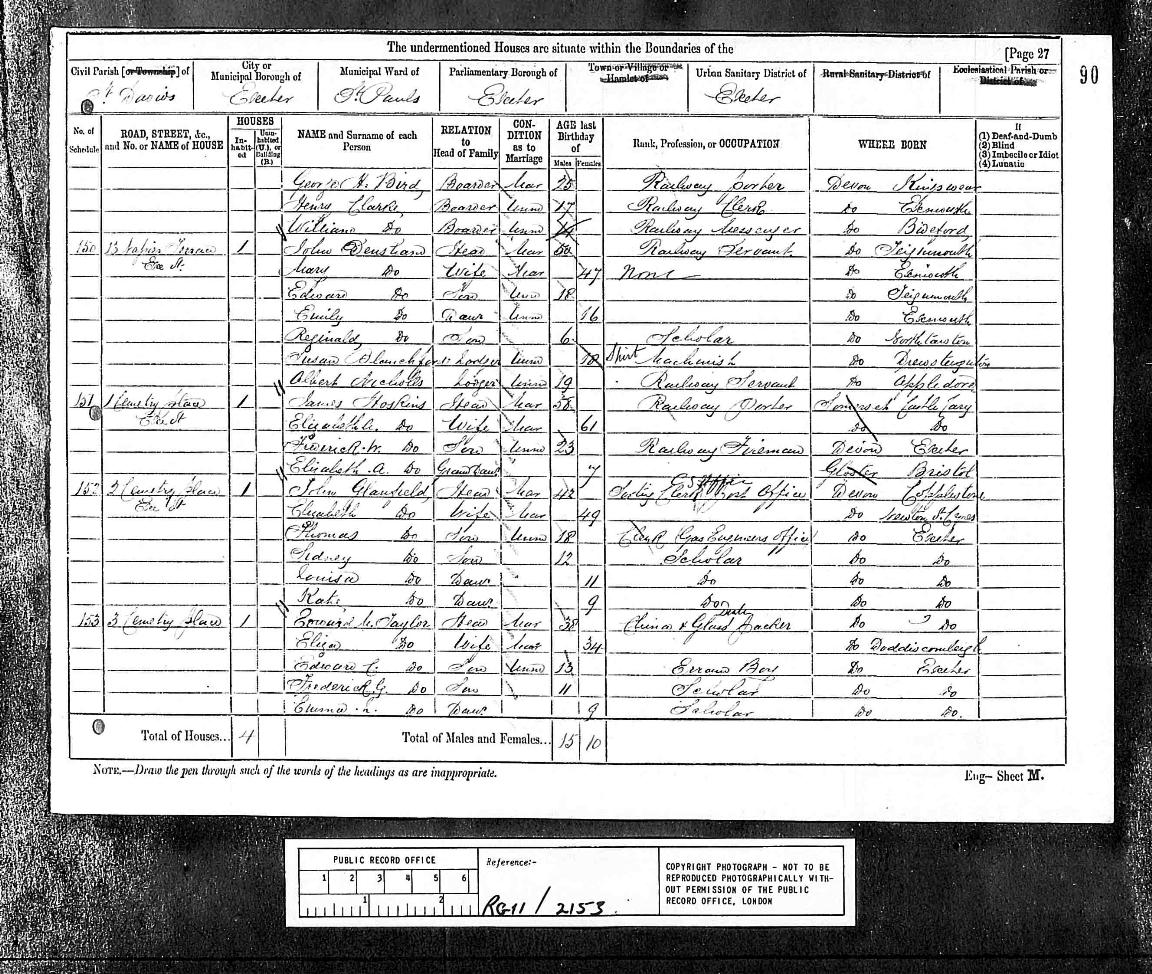 The undermentioned Houses are situate within the Boundaries of the
[Page 27
90
Civil Parish [or Township] of
City or Municipal Borough of
Municipal Ward of
Parliamentary Borough of
Town or Village or Hamlet of
Urban Sanitary District of
Rural Sanitary District of
Ecclesiastical Parish or District of
St Davids Exeter St Pauls Exeter Exeter
No. of Schedule
ROAD, STREET, &c., and No. or NAME of HOUSE
HOUSES
Inhabited
Uninhabited (U.), or Building (B.)
NAME and Surname of each Person
RELATION to Head of Family
CONDITION as to Marriage
AGE last Birthday of
Males Females
Rank, Profession, or OCCUPATION
WHERE BORN
If
(1) Deaf-and-Dumb
(2) Blind
(3) Imbecile or Idiot
(4) Lunatic
George H. Bird Boarder Mar 25 Railway Porter Devon Kingswear
Henry Clarke Boarder Unm 17 Railway Clerk Do Exmouth
William Do Boarder Unm Railway Messenger Do Bideford
150 13 Napier Terrace 1 John Densham Head Mar 50 Railway Servant Do Teignmouth
Exe St Mary Do Wife Mar 47 None Do Exmouth
Edward Do Son Unm 18 Do Teignmouth
Emily Do Daur Unm 16 Do Exmouth
Reginald Do Son 6 Scholar Do
Susan Blanchford Lodger Unm 18 Shirt Machinist Do Drewsteignton
Albert Nicholls Lodger Unm 19 Railway Servant Do Appledore
151 1 Cemetry Place 1 James Hoskins Head Mar 58 Railway Porter Somerset Castle Cary
Exe St Elizabeth A. Do Wife Mar 61 Do Do
Frederick W. Do Son Unm 23 Railway Fireman Devon Exeter
Elizabeth A. Do Grand Daur 7 Gloster Bristol
152 2 Cemetry Place 1 John Glanfield Head Mar 42 Sorting Clerk Post Office Devon Copplestone
Exe St Elizabeth Do Wife Mar 49 Do Newton St Cyres
Thomas Do Son Unm 18 Clerk Gas Engineers Office Do Exeter
Sidney Do Son 12 Scholar Do Do
Louisa Do Daur 11 Do Do Do
Kate Do Daur 9 Do Do Do
153 3 Cemetry Place 1 Edward C. Taylor Head Mar 38 China & Glass Packer Do Do
Eliza Do Wife Mar 34 Do Doddiscombsleigh
Edward C. Do Son Unm 13 Errand Boy Do Exeter
Frederick G. Do Son 11 Scholar Do Do
Emma L. Do Daur 9 Scholar Do Do.
Total of Houses... 4 Total of Males and Females... 15 10
NOTE.—Draw the pen through such of the words of the headings as are inappropriate.
Eng- Sheet M.
PUBLIC RECORD OFFICE
1 2 3 4 5 6
1 2
Reference:-
RG11 / 2153
COPYRIGHT PHOTOGRAPH - NOT TO BE
REPRODUCED PHOTOGRAPHICALLY WITH-
OUT PERMISSION OF THE PUBLIC
RECORD OFFICE, LONDON